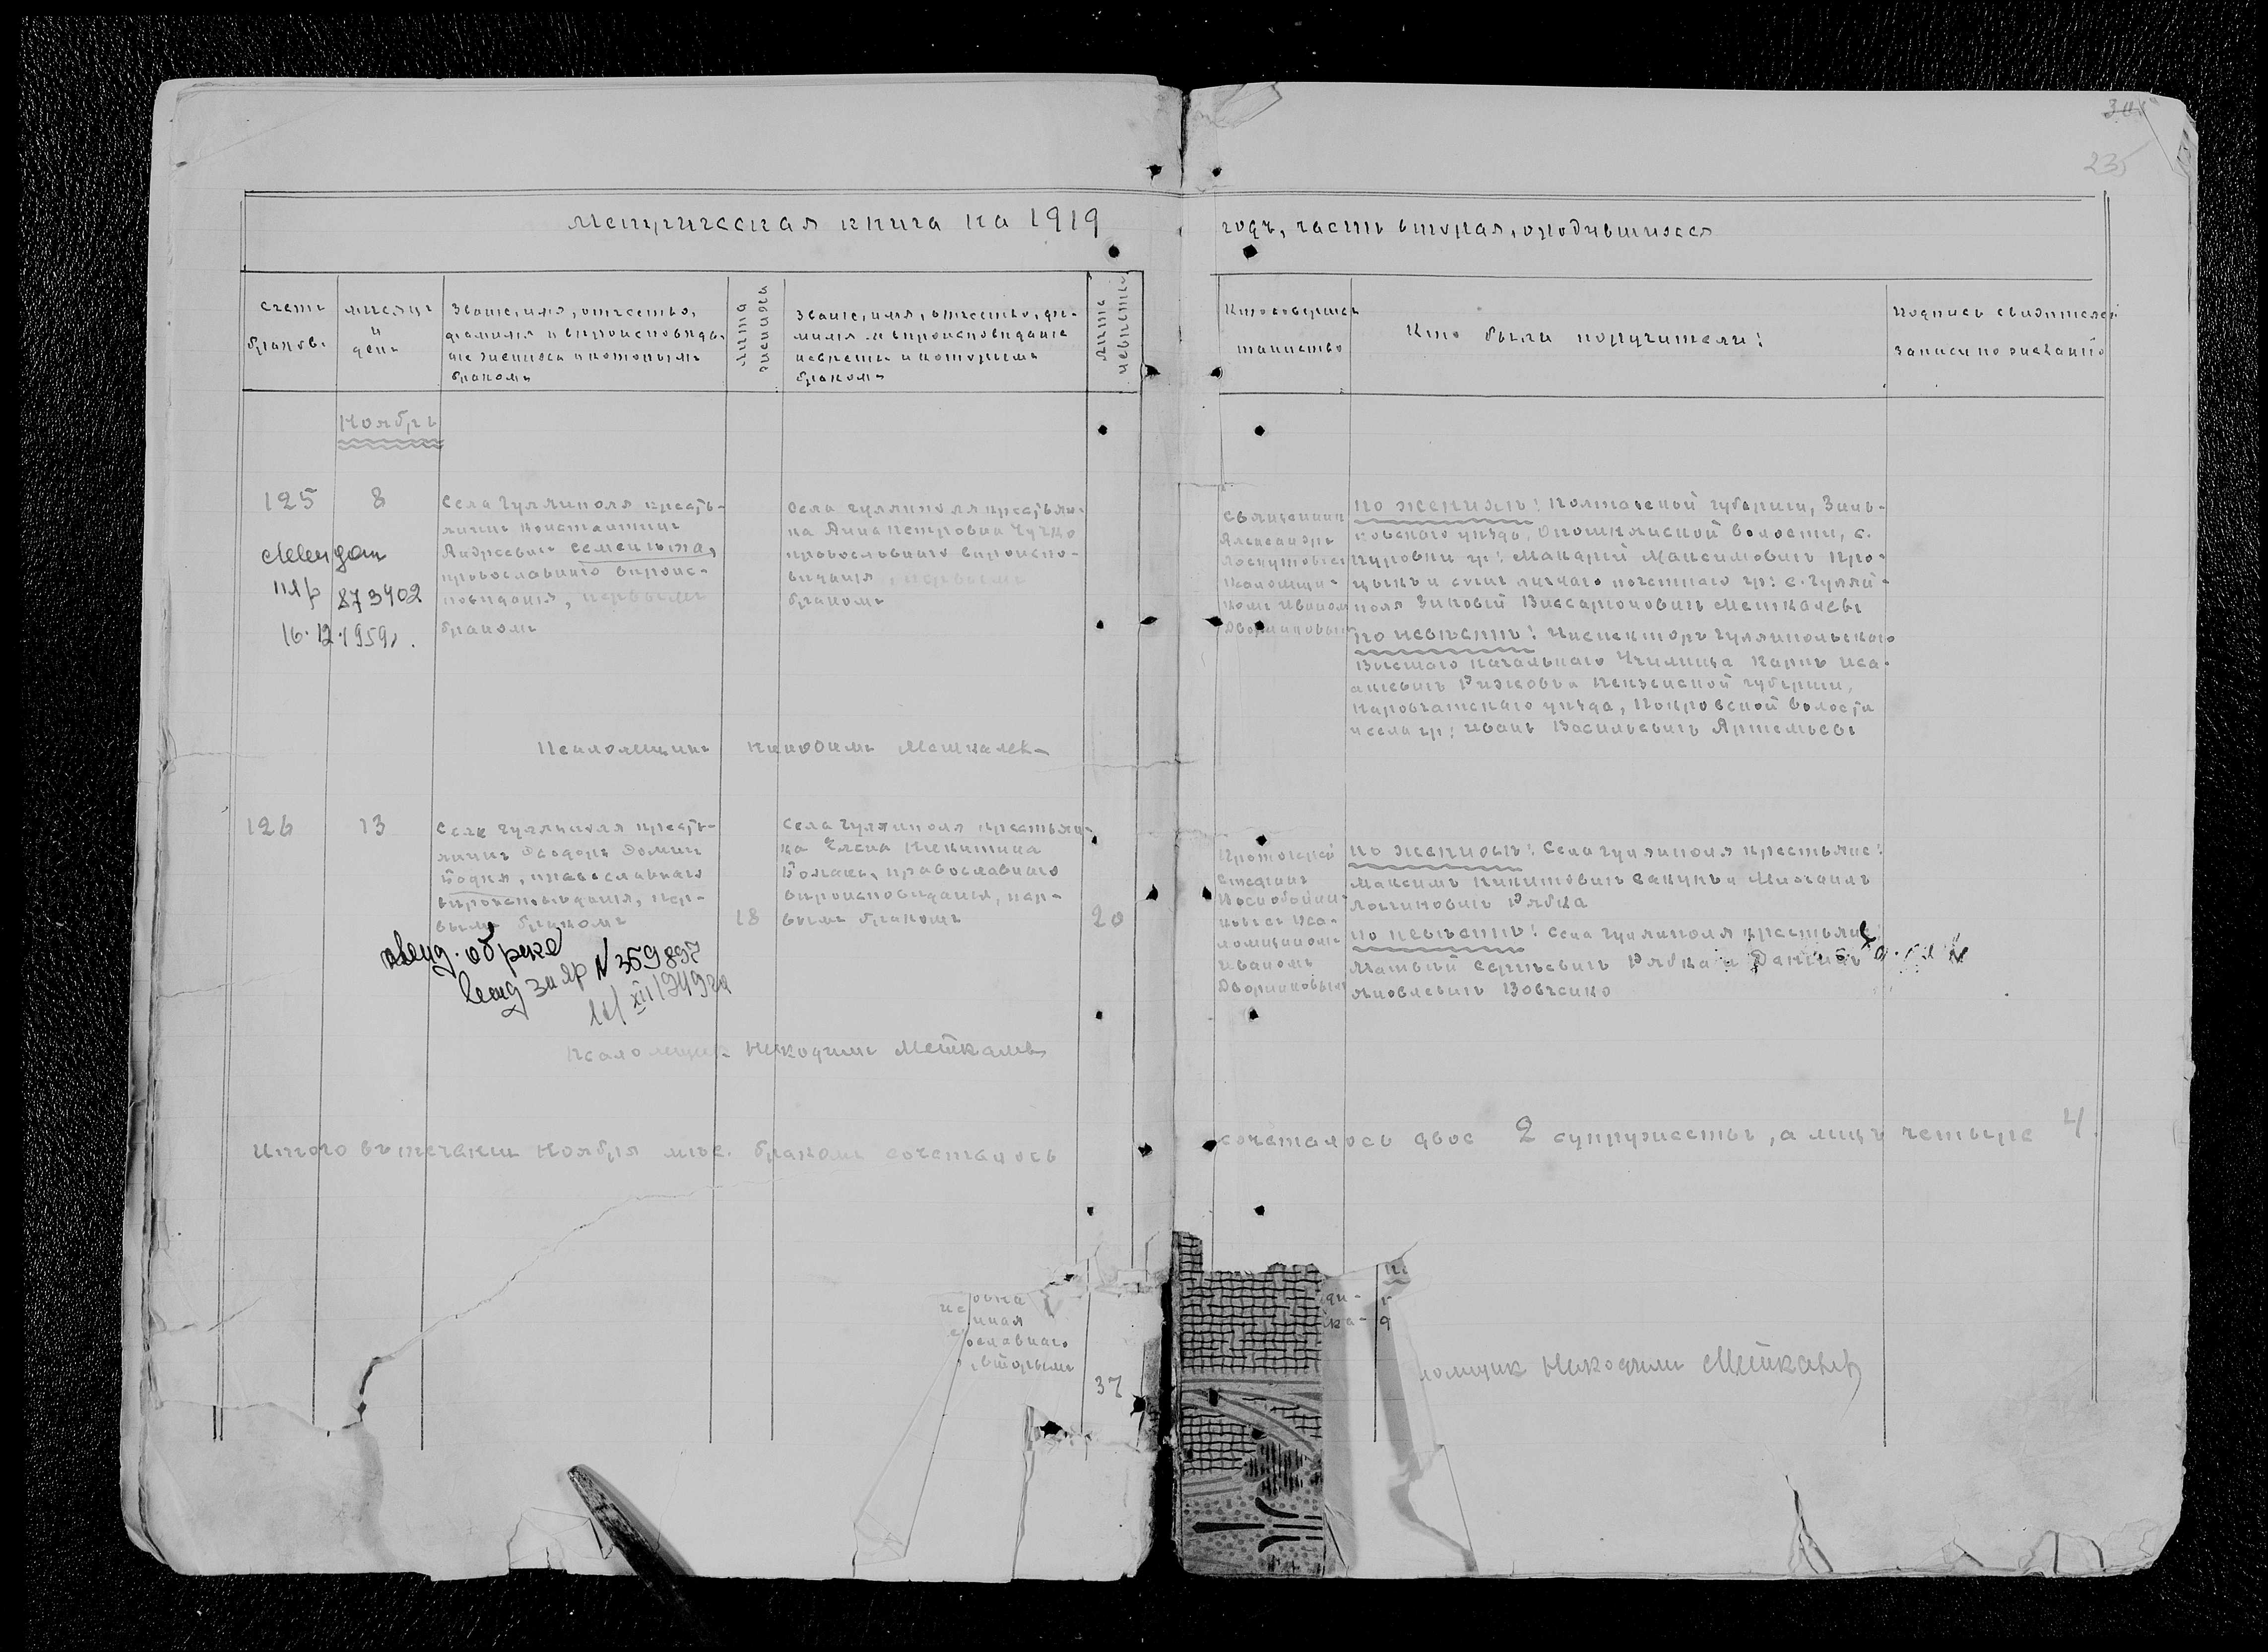 30
235
Метрическая книга на 1919
годъ, часть вторая, о родившихся
Счетъ
браковъ.
Мѣсяцъ
и
день
Званіе, имя, отчество,
фамилія и вѣроисповѣда-
ніе жениха и которымъ
бракомъ
Лѣта
жениха
Званіе, имя, отчество, фа-
милія и вѣроисповѣданіе
невѣсты и которымъ
бракомъ
Лѣта
невѣсты
Кто совершалъ
таинство
Кто были поручители:
Подпись свидетелей
записи по желанію
Ноябрь
125
8
Села Гуляйполя кресть-
янинъ Константинъ
Андреевичъ Семенюта,
православнаго вѣроис-
повѣданія, первымъ
бракомъ
Села Гуляйполя крестьян-
ка Анна Петровна Чучко
православнаго вѣроиспо-
вѣданія, первымъ
бракомъ
873402
16.12.1959г.
Священникъ
Александръ
псаломщи-
комъ Иваномъ
Дворниковымъ
По женихѣ: Полтавской губерніи, Зинь-
ковскаго уѣзда, Опошнянской волости, с.
гр: Макарій Максимовичъ Про-
цыкъ и сынъ личнаго почетнаго гр: с. Гуляй-
поля Зиновій Виссаріоновичъ Мешкалевъ
По невѣстѣ: Инспекторъ Гуляйпольскаго
Высшаго начальнаго Училища Карпъ Иса-
акіевичъ Рижовъ и Пензенской губерніи,
Наровчатскаго уѣзда, Покровской волости
и села гр: Иванъ Васильевичъ Артемьевъ
Псаломщикъ Никодимъ Мешкалевъ
126
13
Села Гуляйполя кресть-
янинъ Ѳеодоръ Ѳоминъ
Бодня, православнаго
вѣроисповѣданія, пер-
вымъ бракомъ
18
Села Гуляйполя крестьян-
ка Елена Никитина
православнаго
вѣроисповѣданія, пер-
вымъ бракомъ
20
N 359897
Протоіерей
Стефанъ
съ пса-
ломщикомъ
Иваномъ
Дворниковымъ
По женихѣ: Села Гуляйполя крестьяне:
Максимъ Никитовичъ Сакунъ и Михаилъ
Логгиновичъ Рябка
По невѣстѣ: Села Гуляйполя крестьяне
Матвѣй Сергѣевичъ Рябка и Даніилъ
Яковлевичъ Вовченко
Псаломщик Никодимъ Мешкалевъ
Итого въ теченіи Ноября мѣс. бракомъ сочеталось
сочеталось двое 2 супружествъ, а лицъ четыре 4.
овна
иная
ославнаго
вторымъ
37
ломщик Никодимъ Мешкалевъ